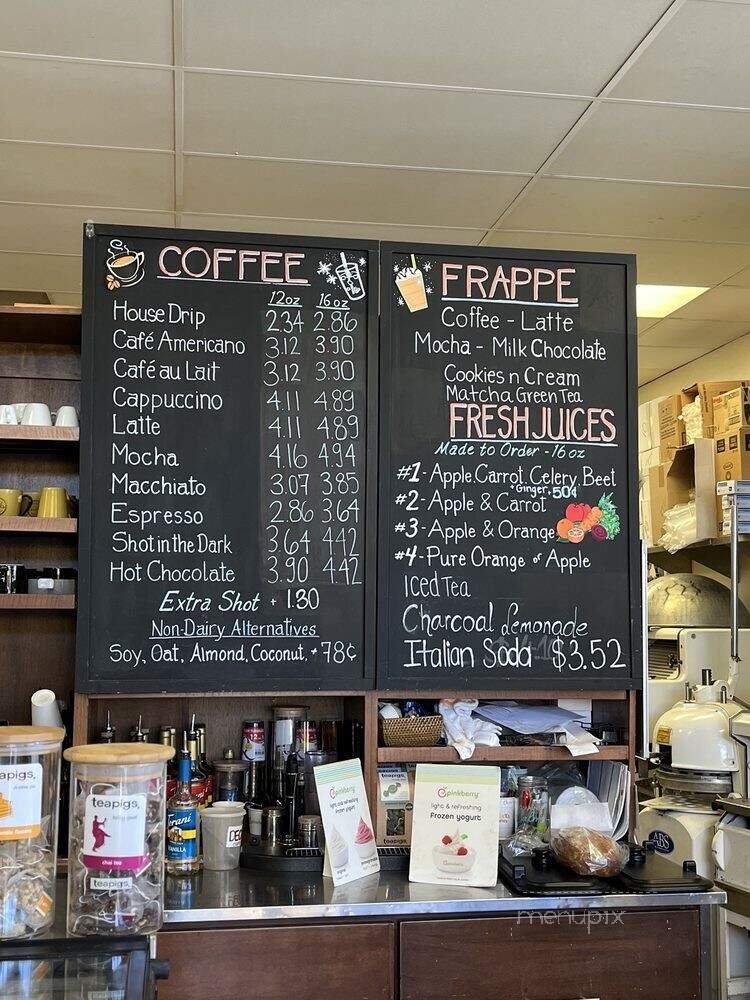 COFFEE
12oz 16oz
House Drip 2.34 2.86
Café Americano 3.12 3.90
Café au Lait 3.12 3.90
Cappuccino 4.11 4.89
Latte 4.11 4.89
Mocha 4.16 4.94
Macchiato 3.07 3.85
Espresso 2.86 3.64
Shot in the Dark 3.64 4.42
Hot Chocolate 3.90 4.42
Extra Shot + 1.30
Non-Dairy Alternatives
Soy, Oat, Almond, Coconut, +78¢
FRAPPE
Coffee - Latte
Mocha - Milk Chocolate
Cookies n Cream
Matcha Green Tea
FRESH JUICES
Made to Order - 16 oz
#1 - Apple, Carrot, Celery, Beet
+Ginger .50¢
#2 - Apple & Carrot
#3 - Apple & Orange
#4 - Pure Orange or Apple
Iced Tea
Charcoal Lemonade
Italian Soda $3.52
teapigs.
chai tea
teapigs.
apigs.
Torani
VANILLA
DEC
pinkberry
Frozen yogurt
teapigs.
pinkberry
light & refreshing
Frozen yogurt
ABS
menupix